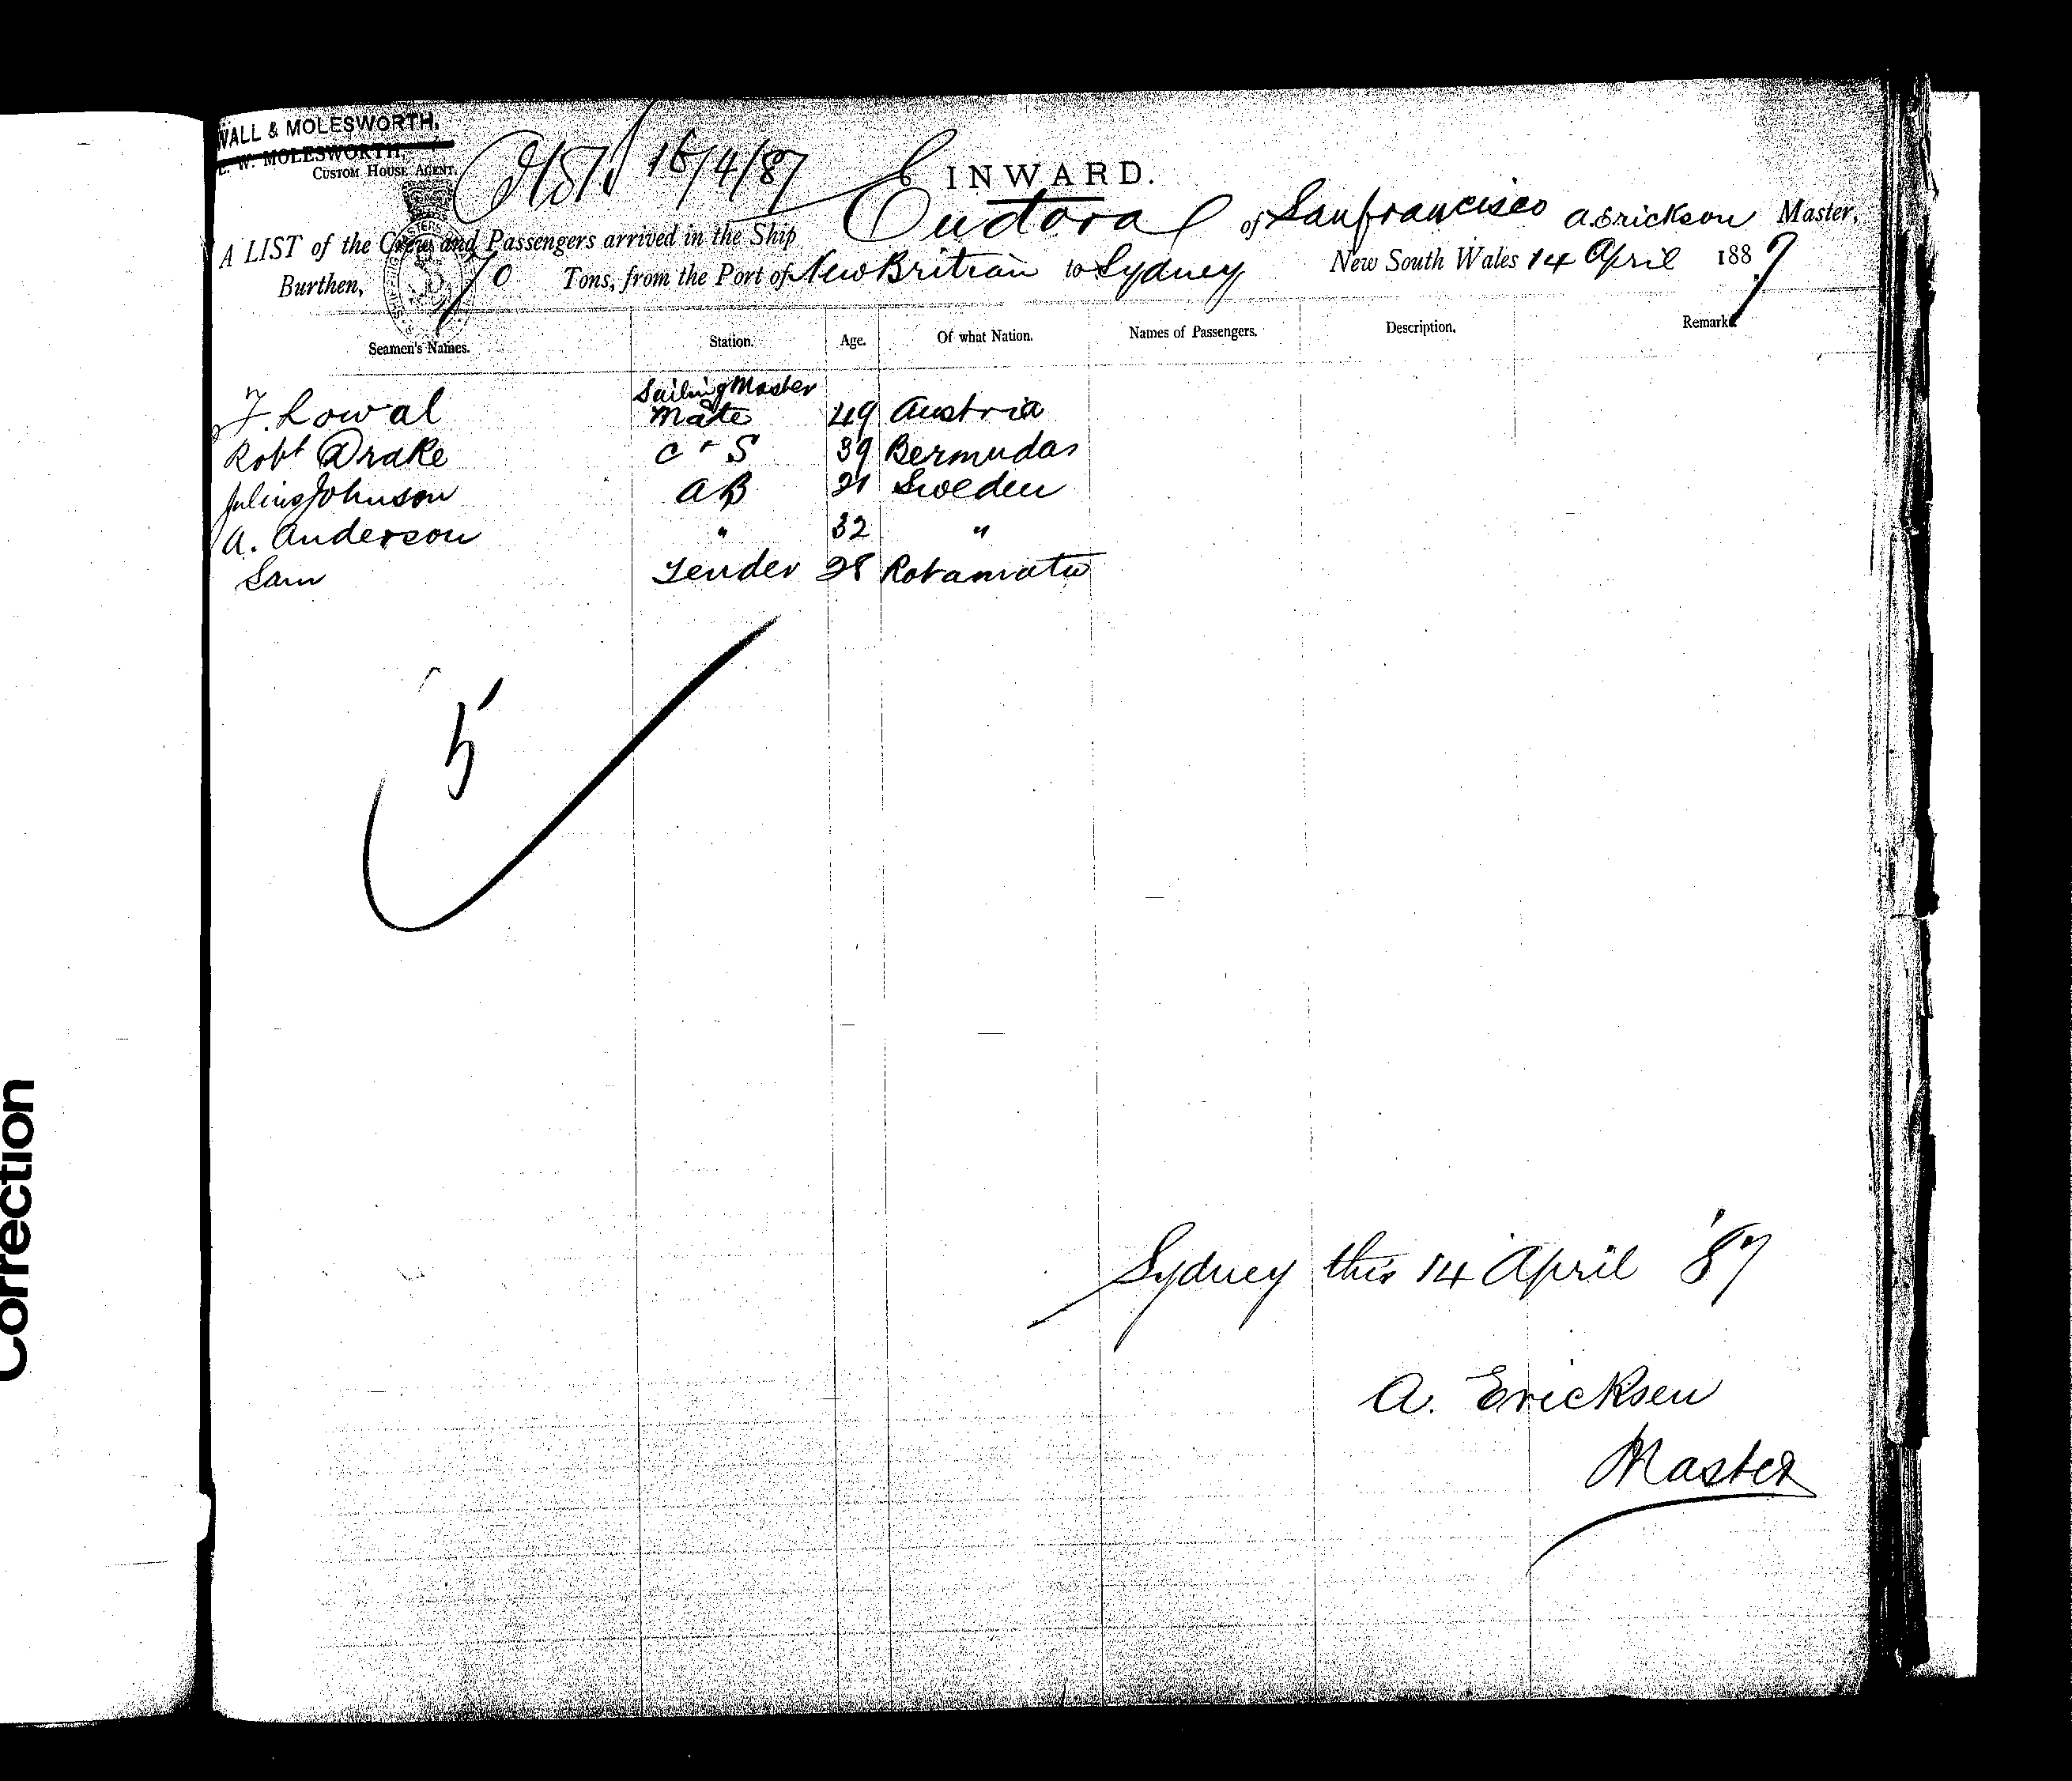 WALL & MOLESWORTH,
W. MOLESWORTH,
CUSTOM HOUSE AGENT.
16/4/87
INWARD.
A LIST of the Crew and Passengers arrived in the Ship Eudora of San francisco A. Erickson Master,
Burthen, 70 Tons, from the Port of New Britian to Sydney New South Wales 14 April 1887
Seamen's Names. Station. Age. Of what Nation. Names of Passengers. Description. Remarks.
Sailing Master
F. Lowal Mate 49 Austria
Robt Drake C & S 39 Bermudas
Julius Johnson AB 21 Sweden
A. Anderson " 32 "
Sam Tender 28 Rotamatu
5
Sydney this 14 April '87
A. Ericksen
Master
Correction